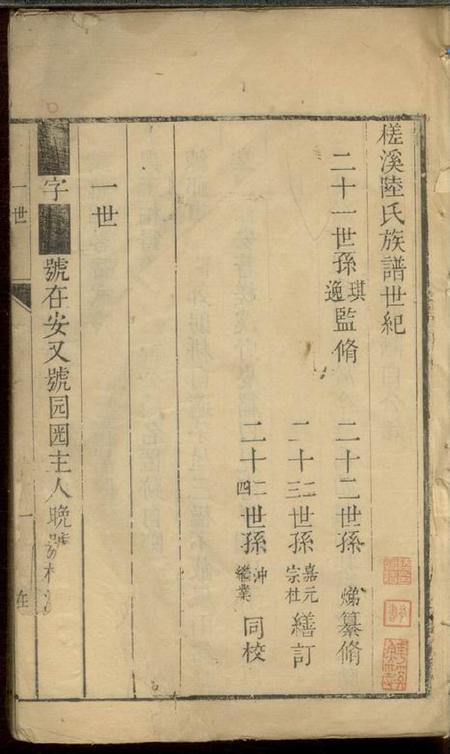 槎溪陸氏族譜世紀
二十一世孫琪逸監脩
二十二世孫焍纂脩
二十二三世孫嘉元宗杜繕訂
二十二四世孫沖繼業同校
一世
字
號在安又號园囦主人晚號
一世
一